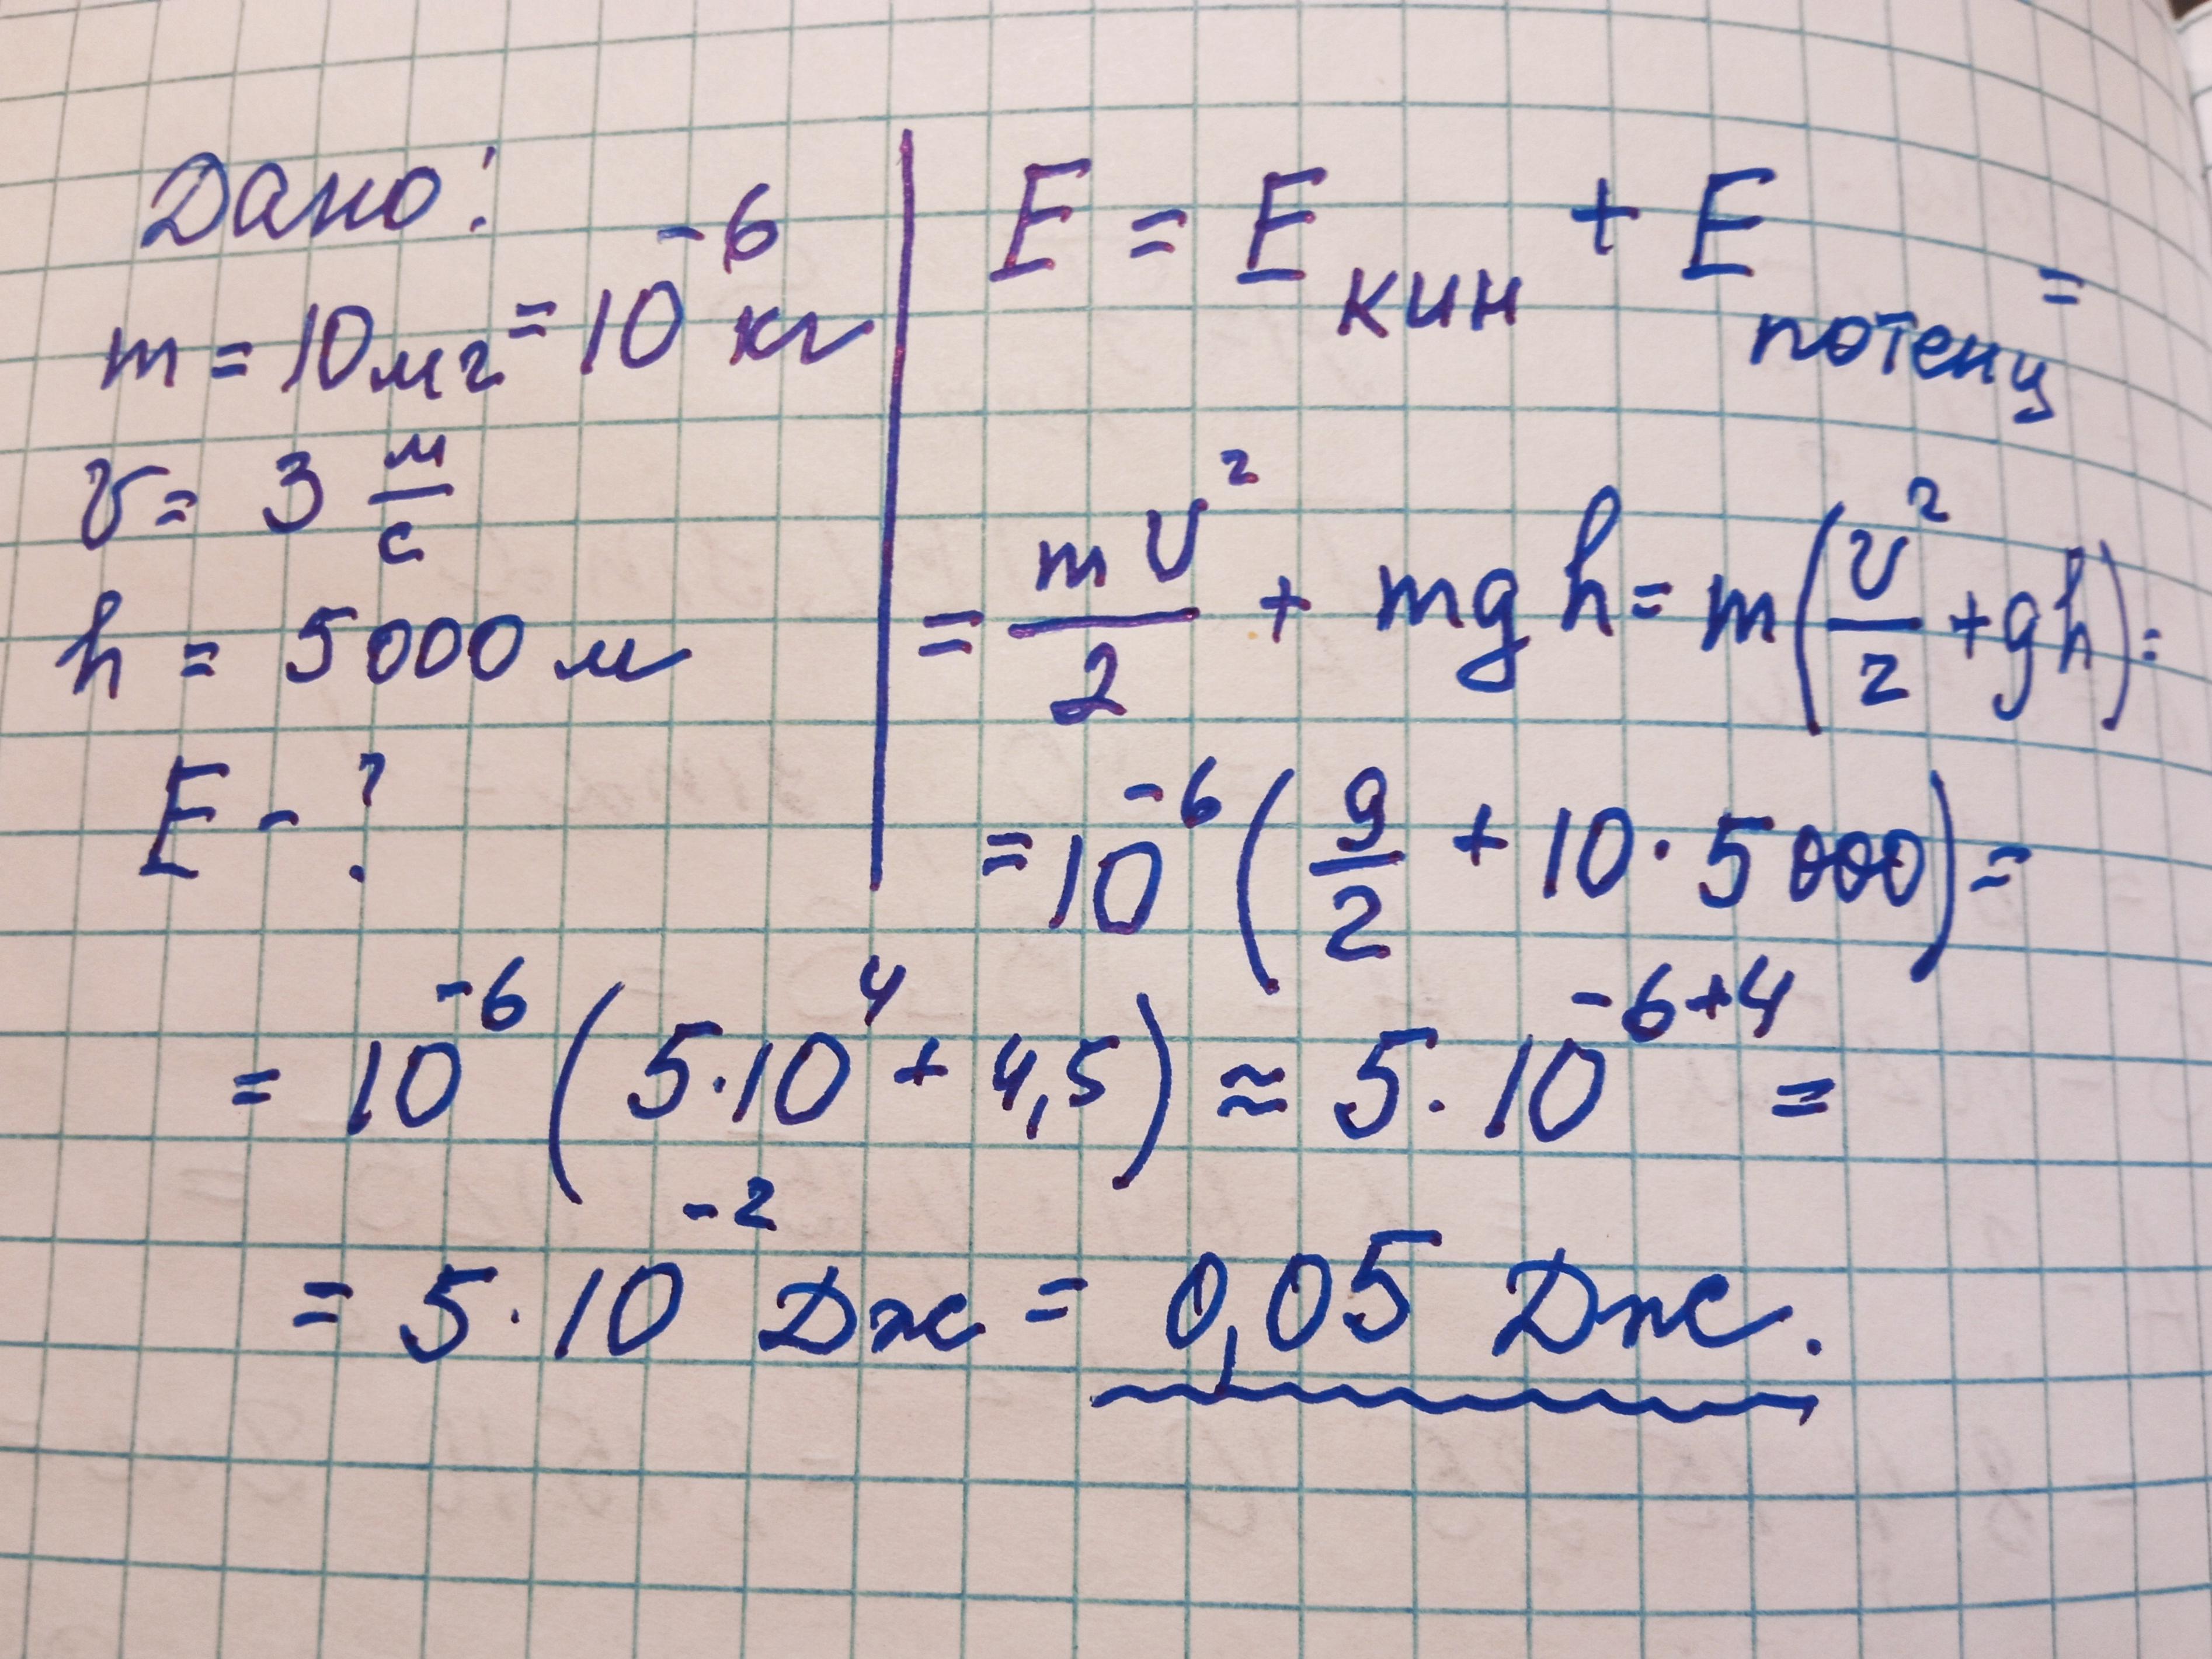 Дано:
m = 10 мг = 10⁻⁶ кг
v = 3 м/с
h = 5000 м
E - ?
E = E кин + E потенц =
= mv²/2 + mgh = m(v²/2 + gh) =
= 10⁻⁶ (9/2 + 10 · 5000) =
= 10⁻⁶ (5·10⁴ + 4,5) ≈ 5 · 10⁻⁶⁺⁴ =
= 5 · 10⁻² Дж = 0,05 Дж.